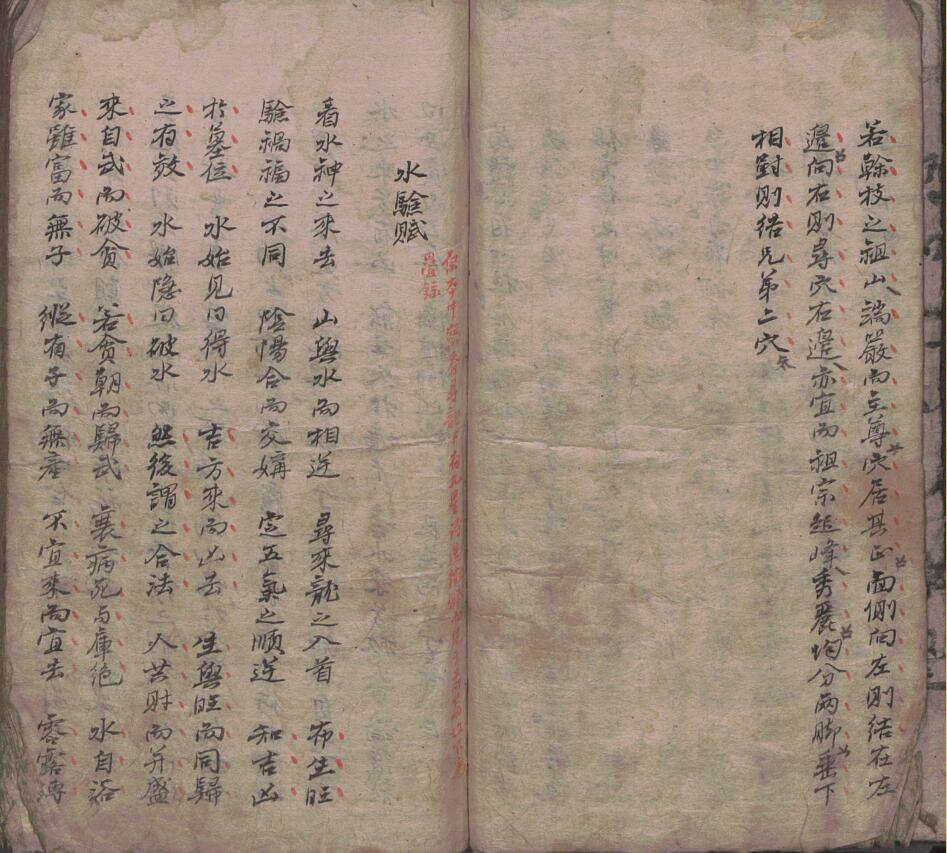 若幹枝之祖山端嚴而主尊穴居其正面側向左則結在左
邉向右則尋穴右邉亦宜而祖宗起峰秀麗均分兩脚垂下
相對則結兄弟二穴
水驗賦
看水神之來去 山與水而相送 尋來龍之入首 布生旺
驗禍福之不同 陰陽合而交媾 定五氣之順逆 知吉凶
於墓位 水始見曰得水 吉方來而凶去 生與旺而同歸
之有效 水始隐曰破水 然後謂之合法 人共財而并盛
來自武而破貪 若貪朝而歸武 衰病死与庫絶 水自
家雖富而無子 縱有子而無產 不宜來而宜去 零